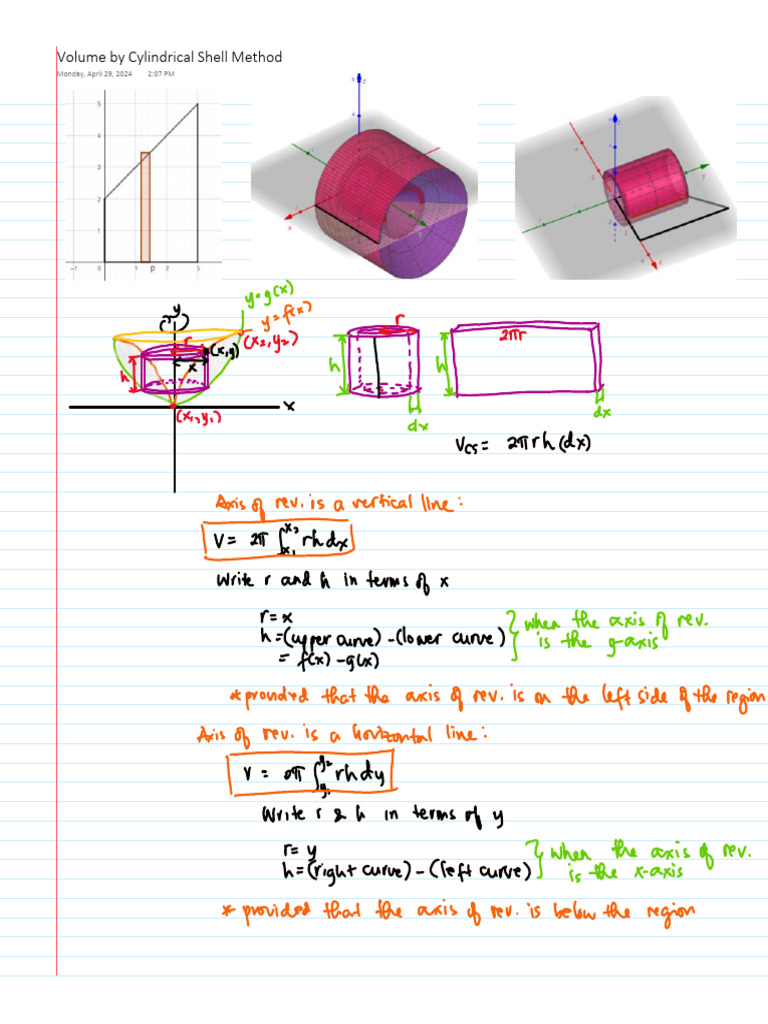 Volume by Cylindrical Shell Method
Monday, April 29, 2024 2:07 PM
5
4
3
2
1
-1 0 1 p 2 3
y=g(x)
y=f(x)
y
(x₂,y₂)
(x,y)
r
x
h
x
(x₁,y₁)
r
h
dx
2πr
h
dx
V_CS = 2πrh(dx)
Axis of rev. is a vertical line:
V = 2π ∫_{x₁}^{x₂} rh dx
Write r and h in terms of x
r=x
h=(upper curve)-(lower curve)
= f(x)-g(x)
when the axis of rev.
is the y-axis
*provided that the axis of rev. is on the left side of the region
Axis of rev. is a horizontal line:
V = 2π ∫_{y₁}^{y₂} rh dy
Write r & h in terms of y
r= y
h=(right curve)-(left curve)
when the axis of rev.
is the x-axis
* provided that the axis of rev. is below the region